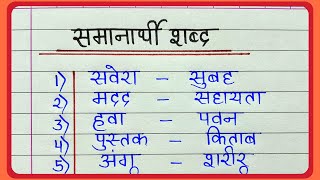 समानार्थी शब्द
1) सवेरा – सुबह
2) मदद – सहायता
3) हवा – पवन
4) पुस्तक – किताब
5) अंगू – शरीरू